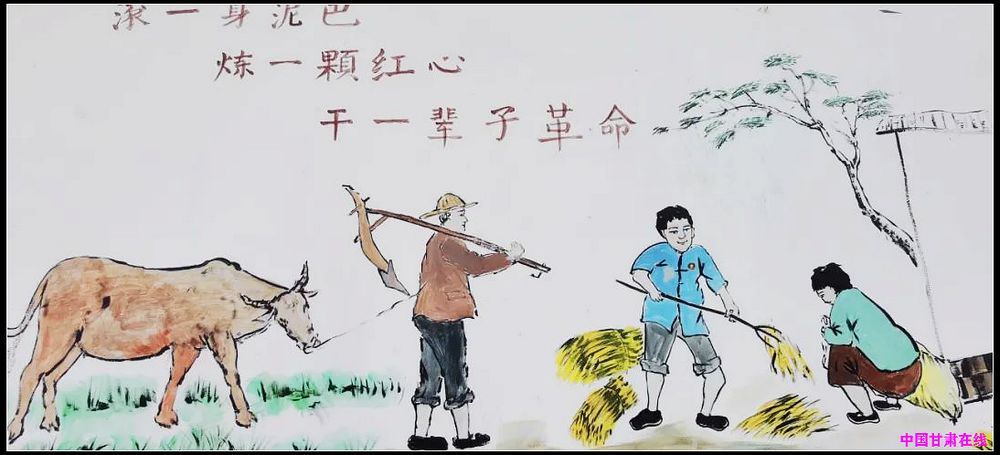 滚一身泥巴
炼一颗红心
干一辈子革命
中国甘肃在线